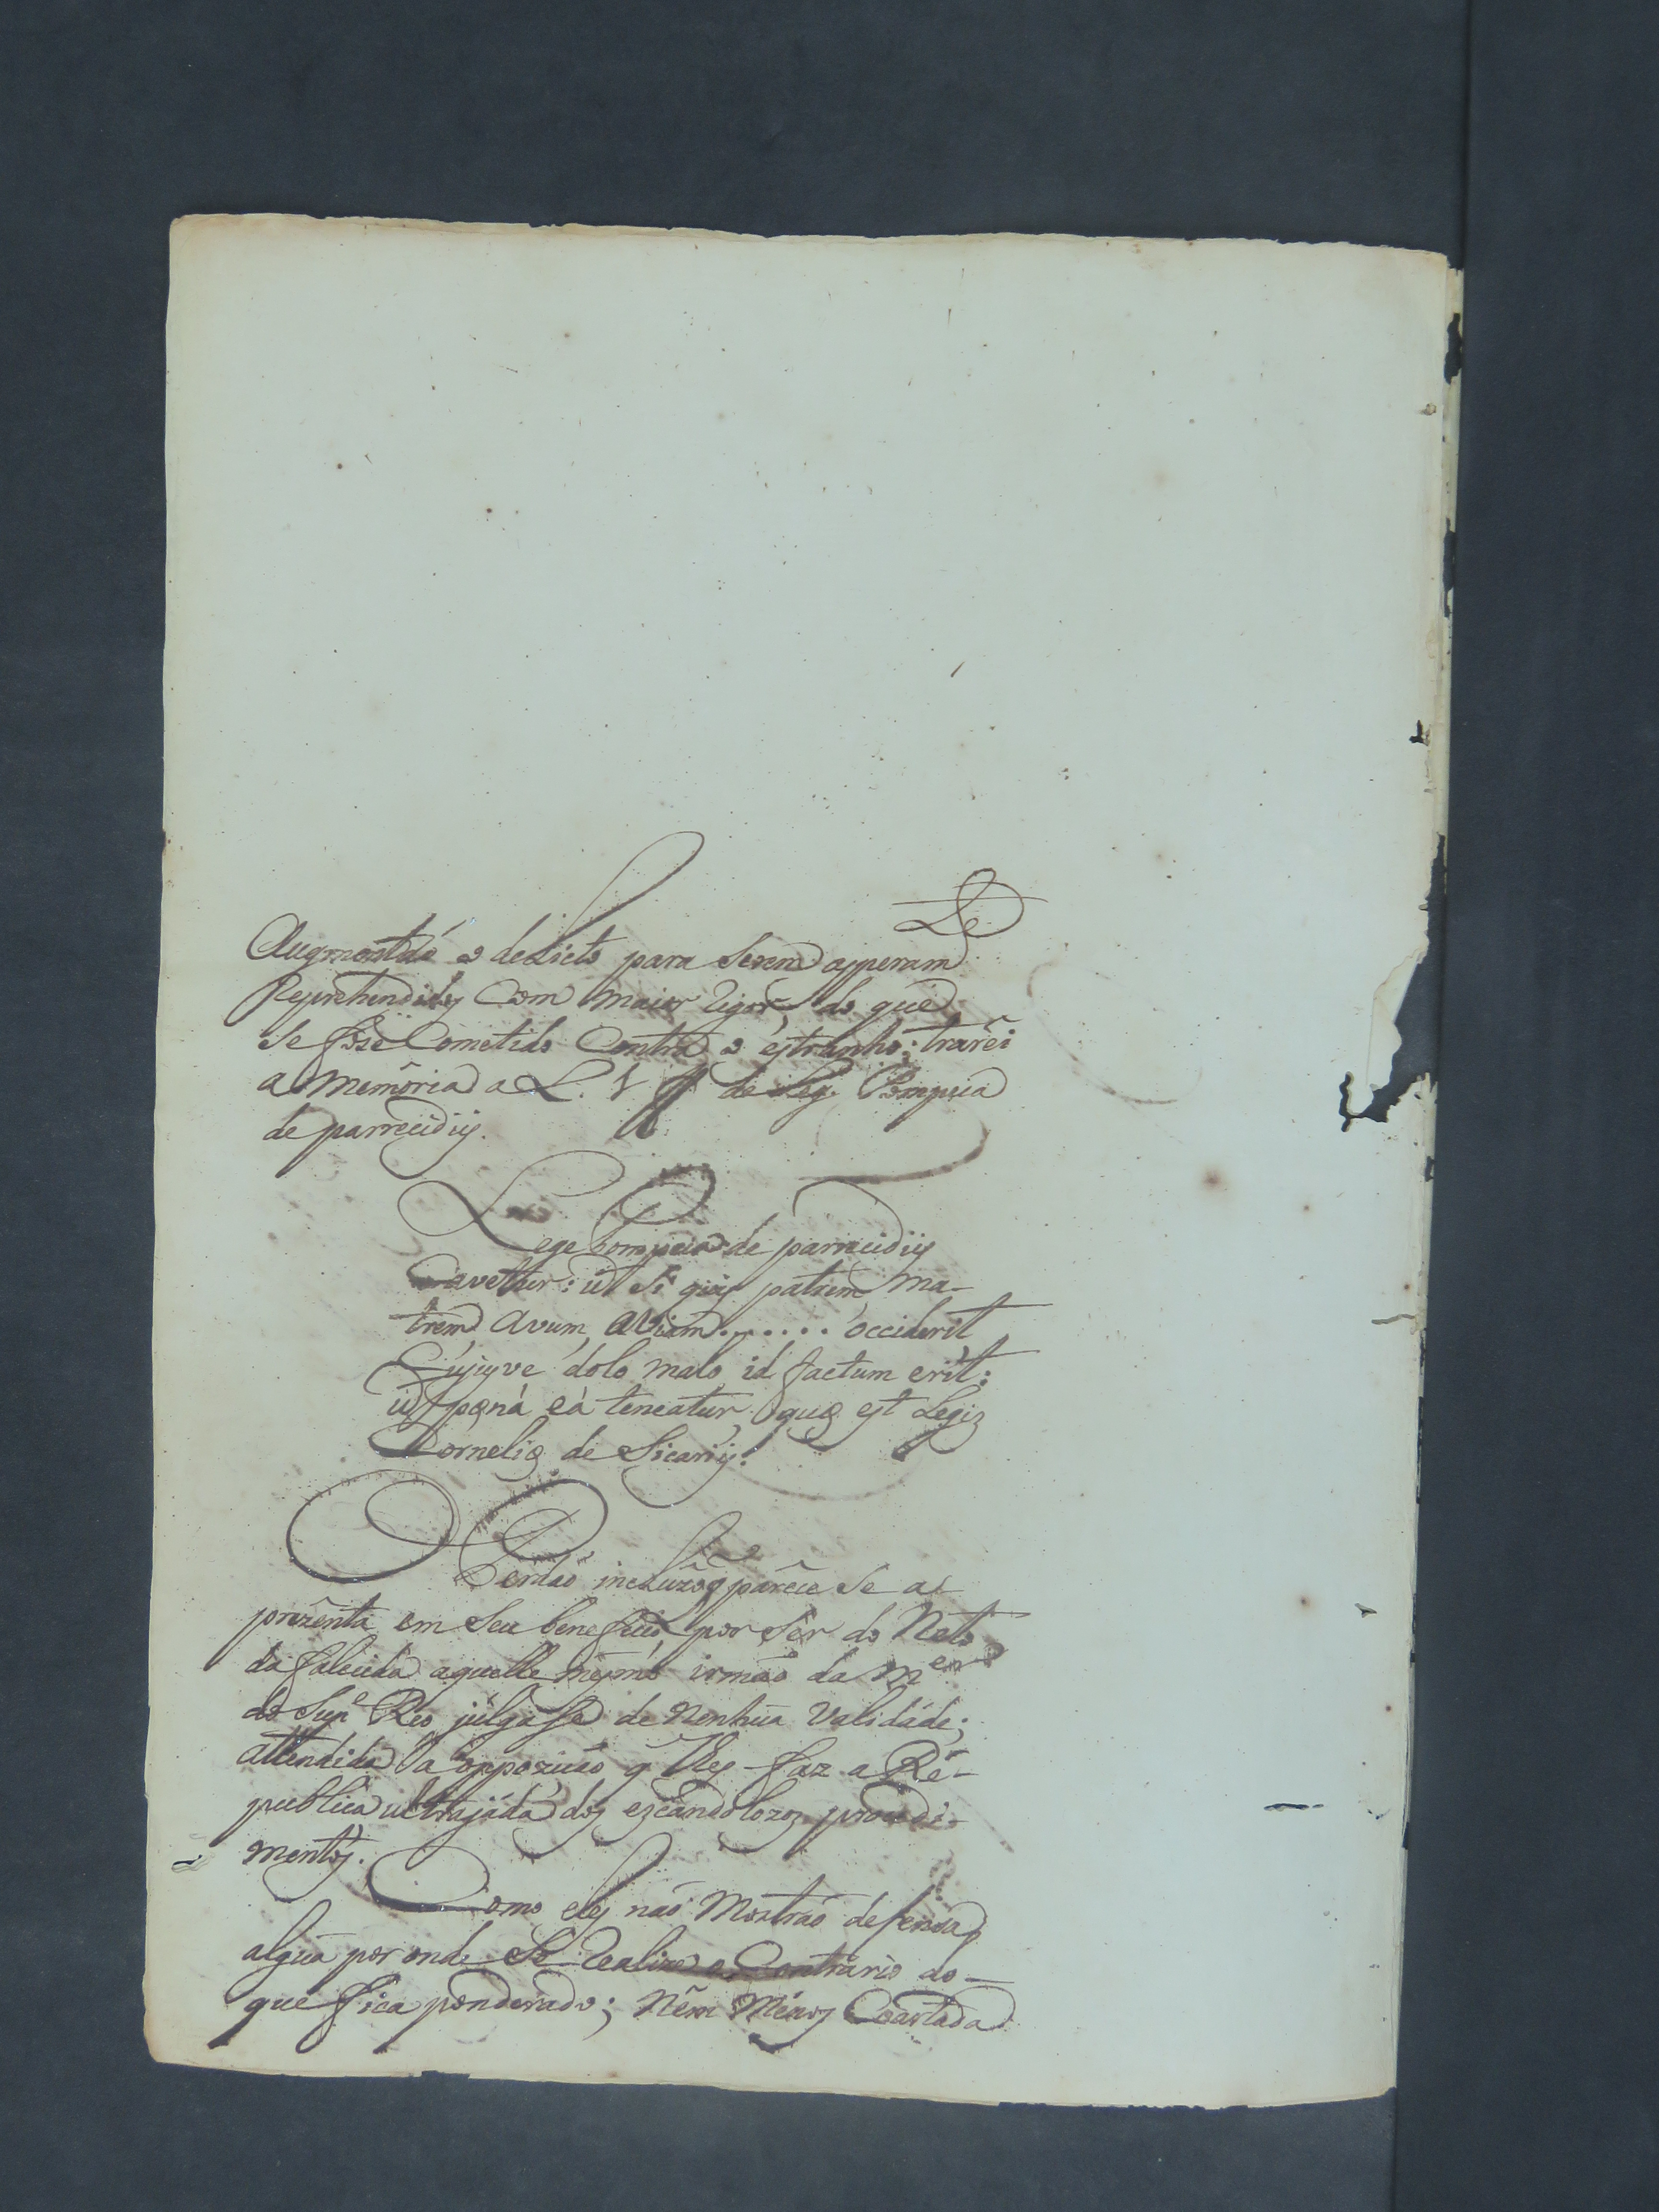 De
Augmentádo o delicto para serem as penas
Reprehendidas Com maior rigor, do que
Se fose Cometido Contra o estranho: trarei
a memoria a L. 1 ff de Leg. Pompeia
de parrecidiis.
Lege Pompeia de parrecidiis
Cavettur: ut si quis patrem, ma-
trem, Avum, Aviam....... occiderit
Cujusve dolo malo id factum erit:
ut pęná eá teneatur, quę est Legis
Cornelię de Sicariis.
Perdaõ incluzo q parece se a-
prezenta em seu beneficio por ser do Neto
da falecida aquelle mesmo irmaõ da m.er
do Sup.e Reo julgasse de Nenhuã Validáde;
attendida a oppoziçaõ q lhes faz a Re-
publica ultrajáda dos escandolozos procedi-
mentos.
Como eles naõ Mostraõ defensa
alguã por onde Se realize o Contrario do
que fica ponderado; Nem Menos Coartada